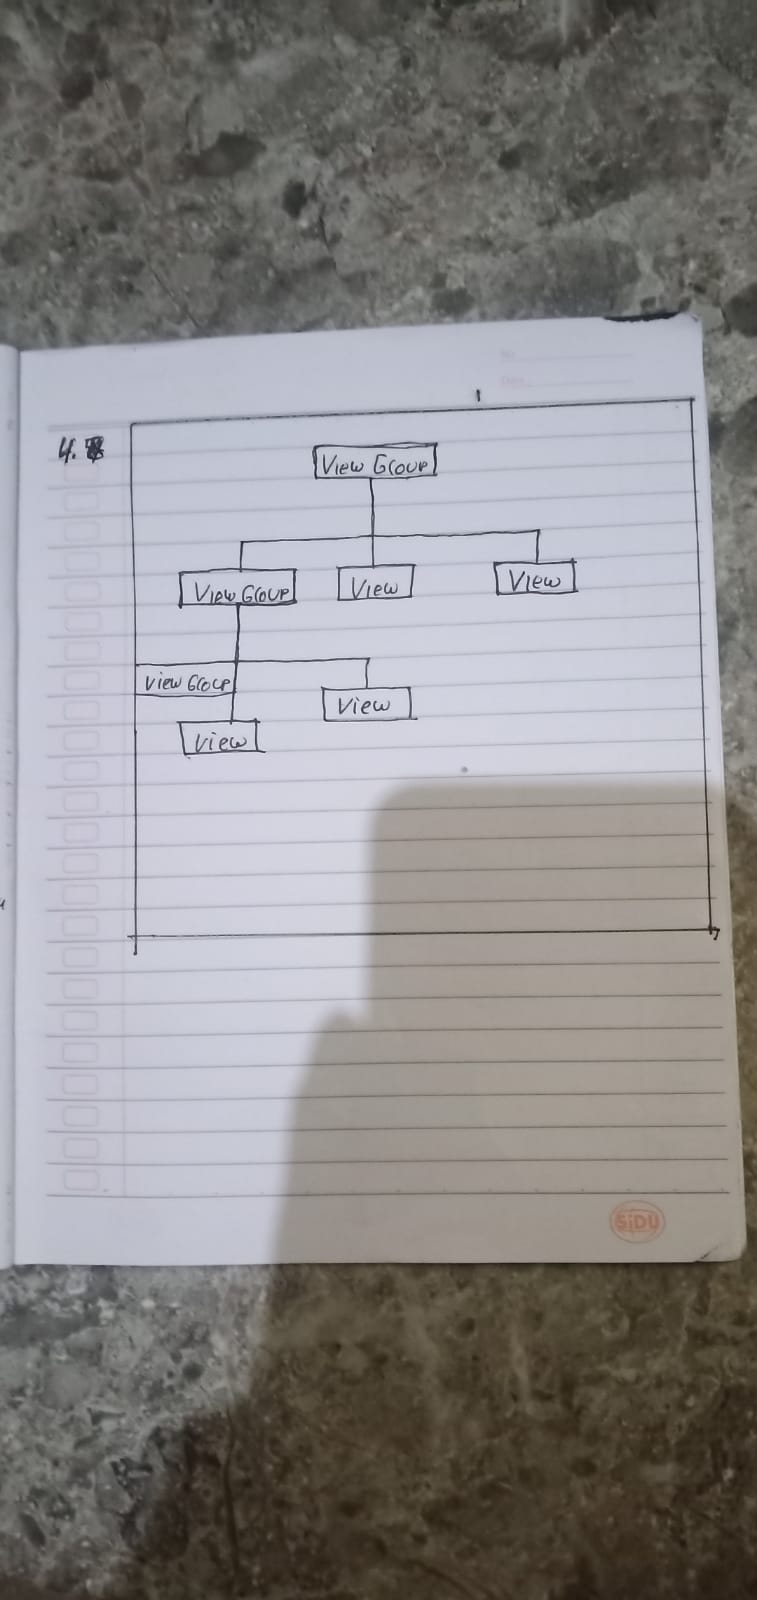 4.
View Group
View Group View View
View Group
View
View
SiDU